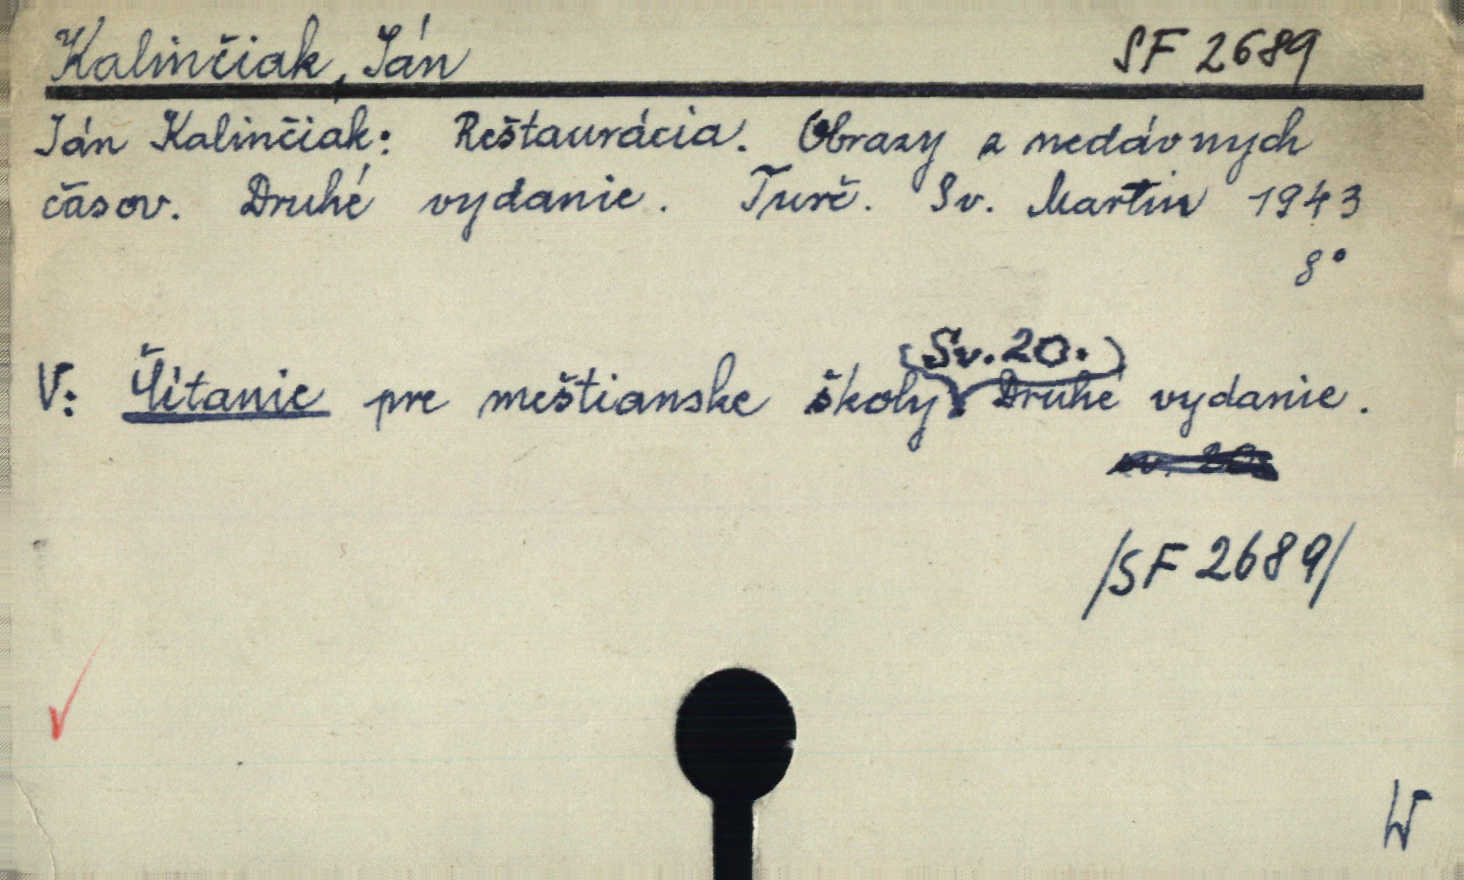 Kalinčiak, Ján SF 2689
Ján Kalinčiak: Reštaurácia. Obrazy z nedávnych
časov. Druhé vydanie. Turč. Sv. Martin 1943
8°
(Sv. 20.)
V: Čítanie pre meštianske školy. Druhé vydanie.
/SF 2689/
W